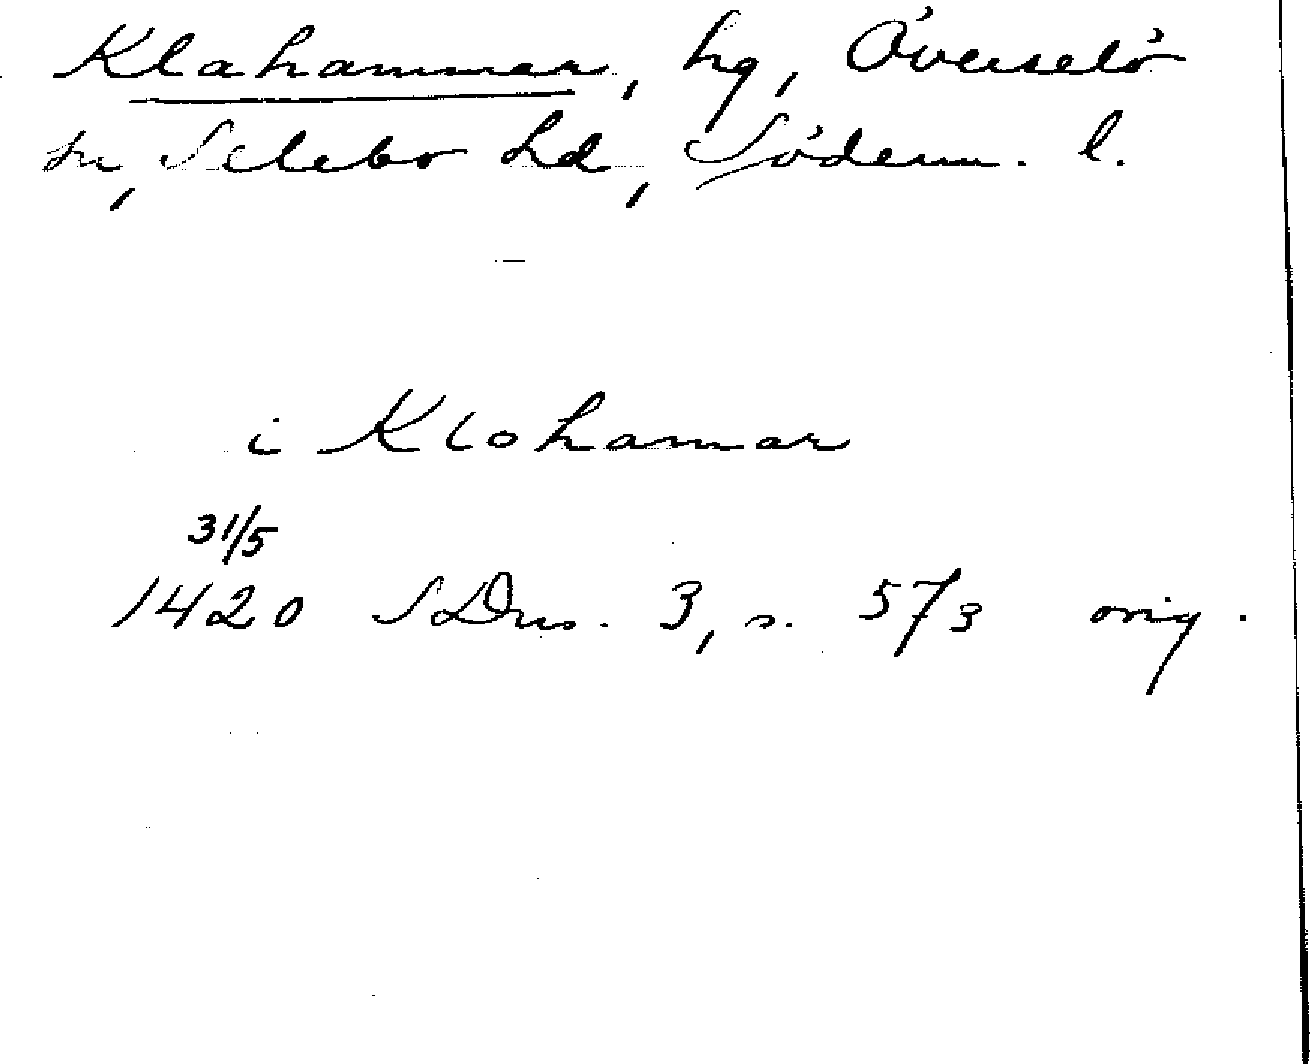 Klahammar, hg, Överselö
sn, Selebo hd, Söderm. l.
i Klohamar
31/5
1420 SDns. 3, s. 573 orig.